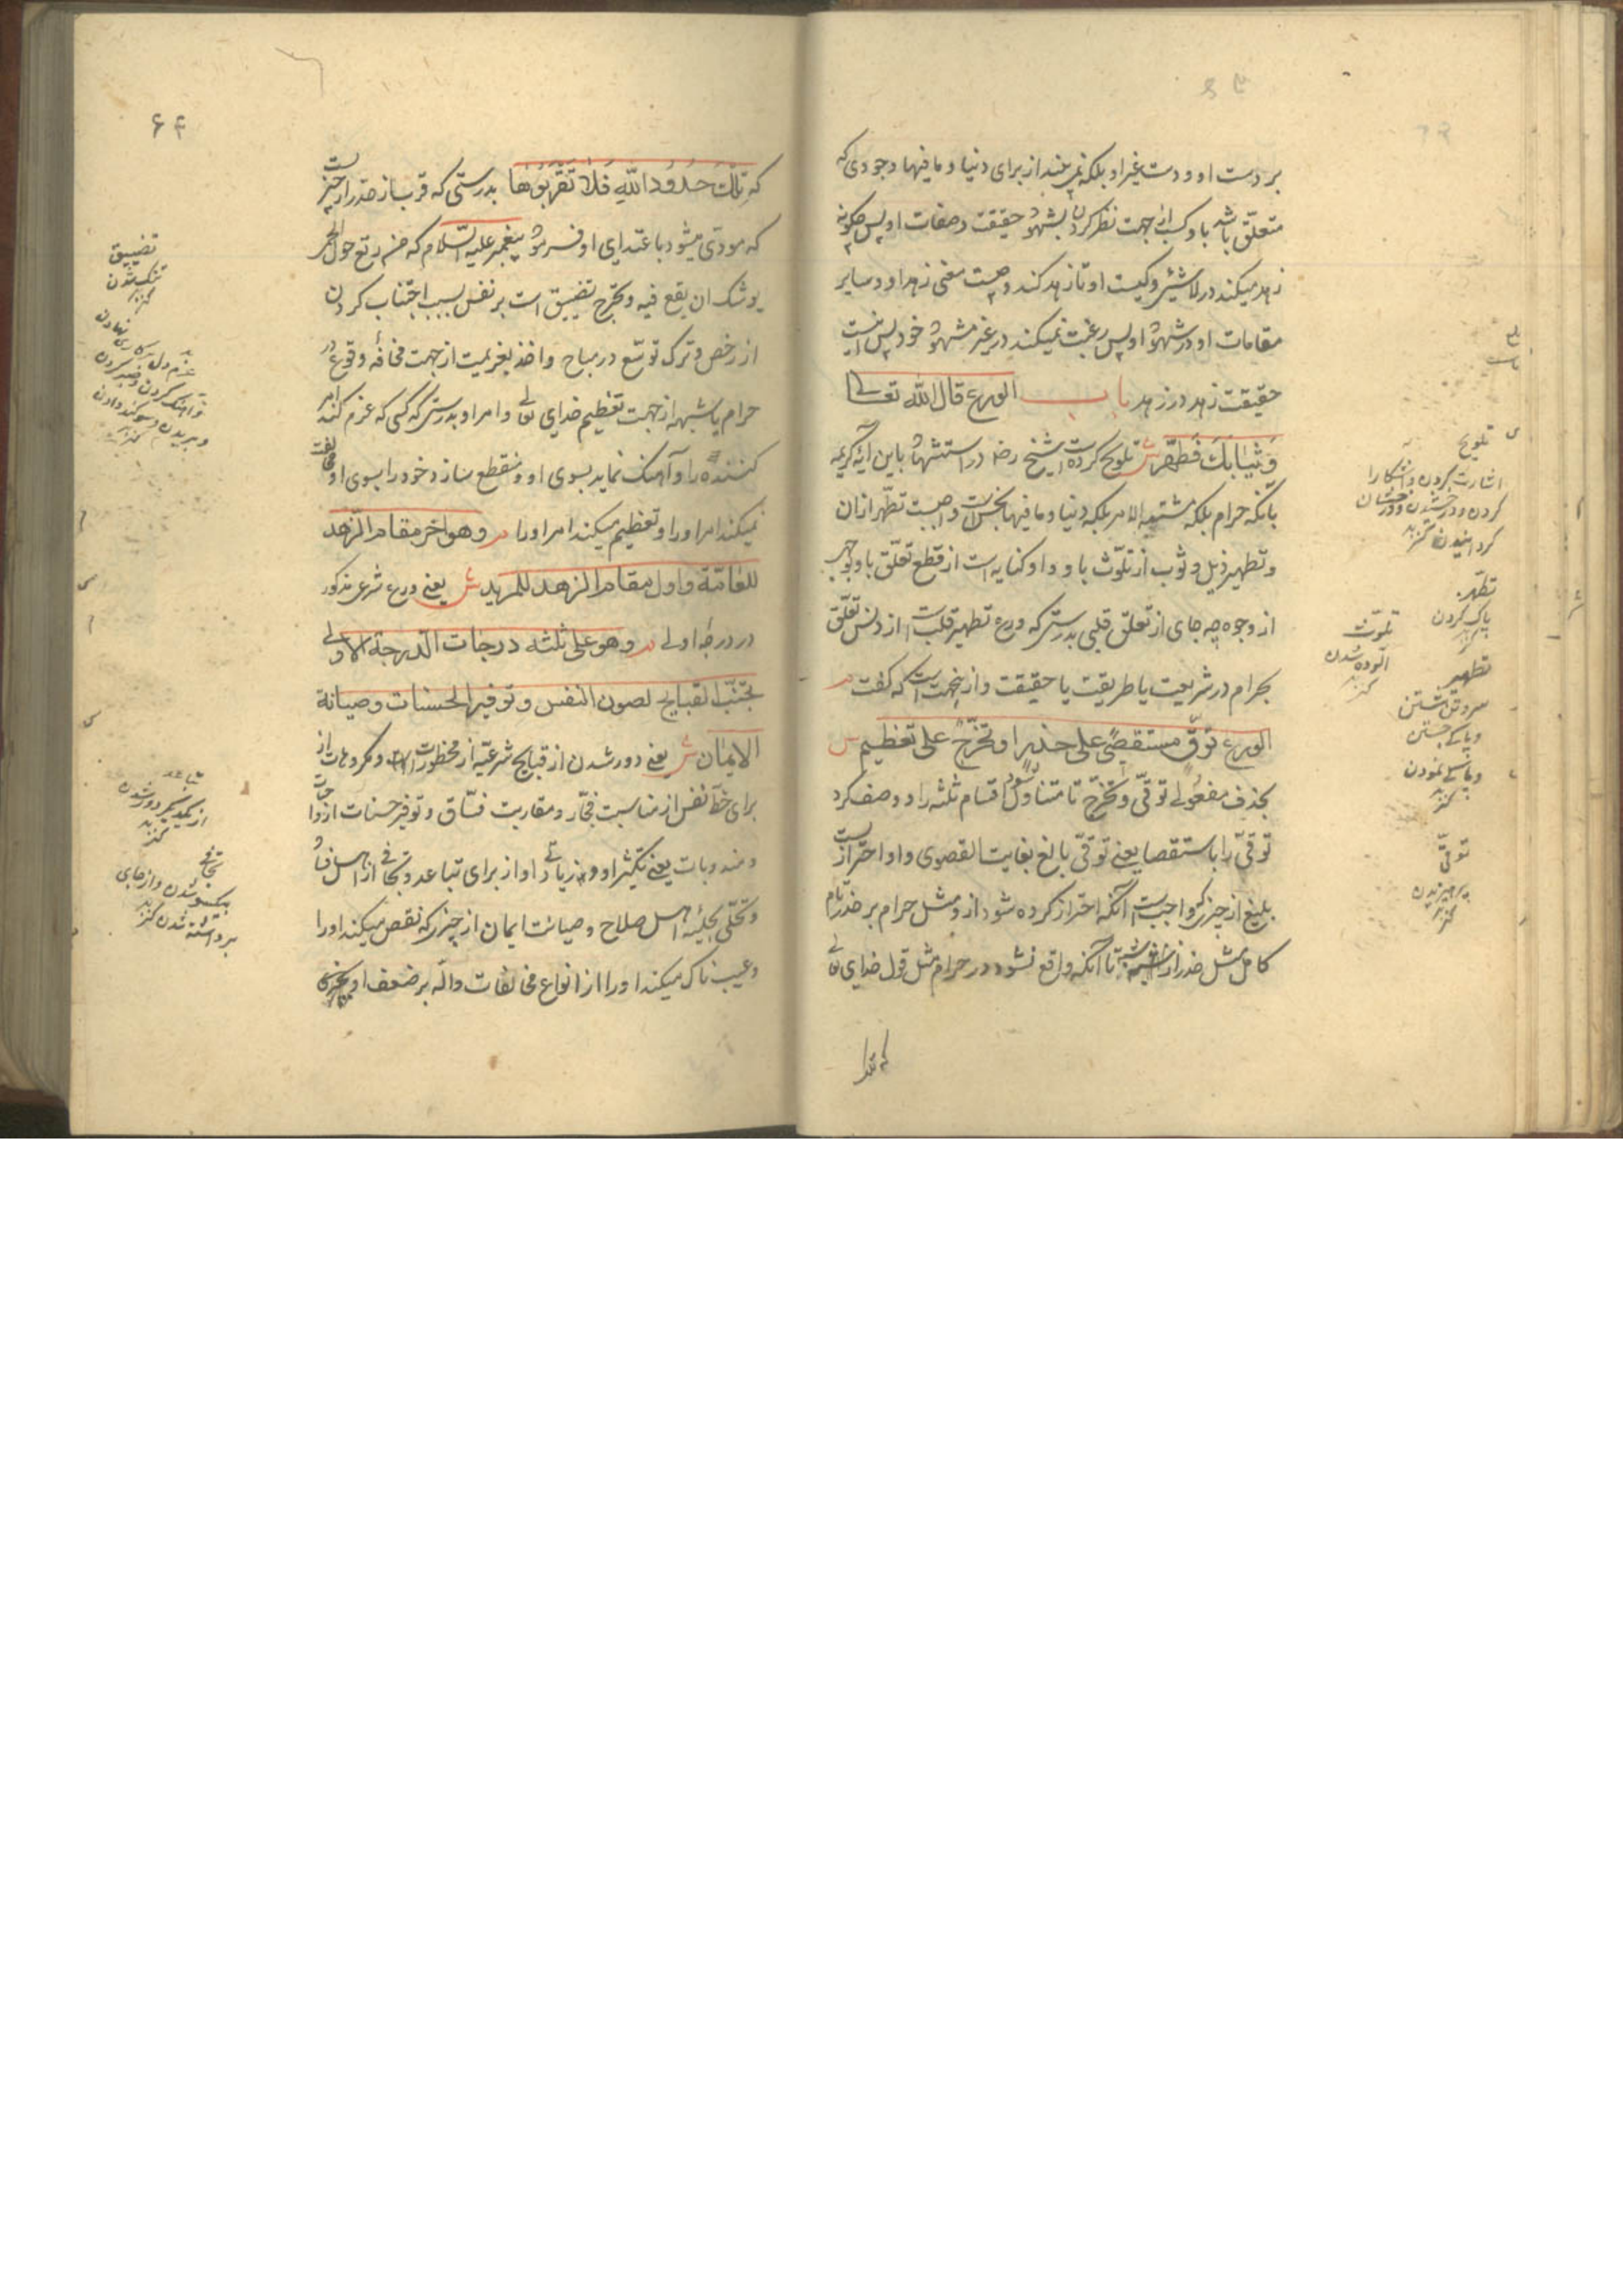 بر دست او و دست غیر او بلکه نمی بیند از برای دنیا و ما فیها وجودی که
متعلق باشد باو کسب از جهت نظر کردن بشهود حقیقت و صفات او پس چگونه
زهد میکند در لا شیئ و کیست او تا زهد کند و چیست معنی زهد او و سایر
مقامات او در شهود او پس رغبت نمیکند در غیر مشهود خود پس اینست
حقیقت زهد در زهد باب الورع قال الله تعالی
وَثِیَابَكَ فَطَهِّر ش تلویح کرده است شیخ رضه در استشهاد باین آیه کریمه
بآنکه حرام بلکه مشتبه الامر بلکه دنیا و ما فیها نجس است واجبست تطهر ازان
و تطهیر ذیل و ثوب از تلوّث باو و او کنایه است از قطع تعلّق باو بوجهی
از وجوه چه جای از تعلق قلبی بدرستی که ورع تطهیر قلب است از دنس تعلّق
بحرام در شریعت یا طریقت یا حقیقت و ازینجهت است که گفت م
الورع توقٍّ مستقصًی علی حذرٍ او تحرّجٌ علی تعظیمٍ ش
بحذف مفعولی توقّی و تحرّج تا متناول شود اقسام ثلثه را و وصف کرد
توقّی را باستقصا یعنی توقّی بالغ بغایت القصوی و او احتراز است
بلیغ از چیزی که واجبست آنکه احتراز کرده شود ازو مثل حرام بر حذر تام
کامل مثل حذر از شبهه تا آنکه واقع نشود در حرام مثل قول خدای تعالی
تلویح
اشارت کردن و آشکارا
کردن و درخشیدن و درخشان
گردانیدن کنز
تطهّر
پاک کردن
تلوّث
آلوده شدن
کنز
تطهیر
سر و تن شستن
و پاکی جستن
و پاکی نمودن
کنز
توقّی
پرهیزیدن
کنز
۶۴
که تِلْكَ حُدُودُ اللّٰهِ فَلَا تَقْرَبُوهَا بدرستی که قرب باز حذر از چیزیست
که مودّی میشود باعتدای او فرمود پیغمبر علیه السّلام که من رتع حول الحمی
یوشک ان یقع فیه و تحرّج تضییق است بر نفس بسبب اجتناب کردن
از رخص و ترک توسّع در مباح و اخذ بعزیمت از جهت مخافه وقوع در
حرام یا شبهه از جهت تعظیم خدای تعالی و امر او بدرستی که کسی که عزم کند امر
کننده را و آهنگ نماید بسوی او و منقطع سازد خود را بسوی او مخالفت
نمیکند امر او را و تعظیم میکند امر او را م وهو اخر مقام الزّهد
للعامّة واول مقام الزهد للمرید ش یعنی ورع شرعی مذکور
در درجه اولی م وهو علی ثلثه درجات الدّرجة الاولی
تجنّب القبایح لصون النفس وتوفیر الحسنات وصیانة
الایمان ش یعنی دور شدن از قبایح شرعیّه از محظورات و مکروهات از
برای حظّ نفس از مناسبت فجّار و مقاربت فسّاق و توفیر حسنات از واجبات
و مندوبات یعنی تکثیر او و زیادتی او از برای تباعد و تجافی از اهل فساد
و تحلّی بحلیّه اهل صلاح و صیانت ایمان از چیزی که نقص میکند او را
و عیب ناک میکند او را از انواع مخالفات دالّه بر ضعف او
تضییق
تنک شدن
کنز
عزم دل بر کاری نهادن
و آهنک کردن و صبر کردن
و بریدن و سوکند دادن
کنز
تباعد
از یکدیگر دور شدن
کنز
تجافی
بیکسو شدن و از جای
برداشته شدن کنز